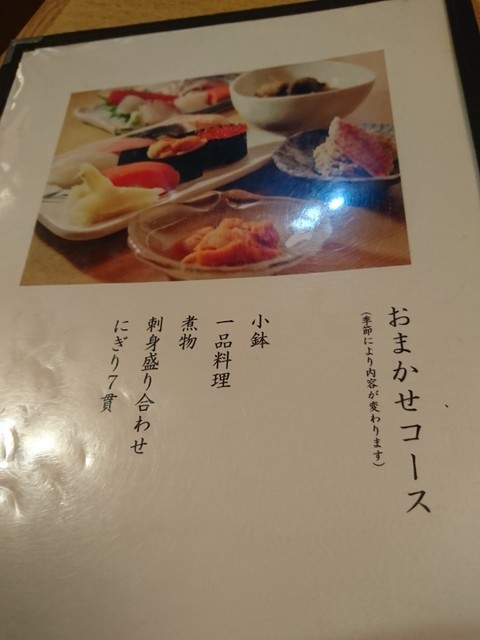 おまかせコース
（季節により内容が変わります）
小鉢
一品料理
煮物
刺身盛り合わせ
にぎり７貫